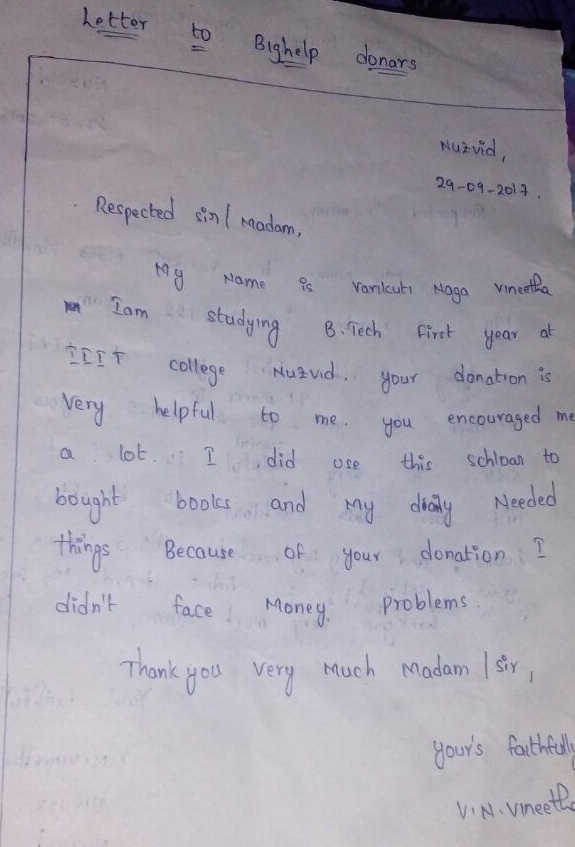 Letter to Bighelp donars
Nuzvid,
29-09-2017.
Respected sir/ Madam,
My Name is Vankuti Naga Vineetha
Iam studying B.Tech first year at
IIIT college Nuzvid. your donation is
Very helpful to me. you encouraged me
a lot. I did use this schloar to
bought books and My daily Needed
things. Because of your donation I
didn't face Money problems.
Thank you very Much Madam / sir,
your's faithfully
V.N.Vineetha